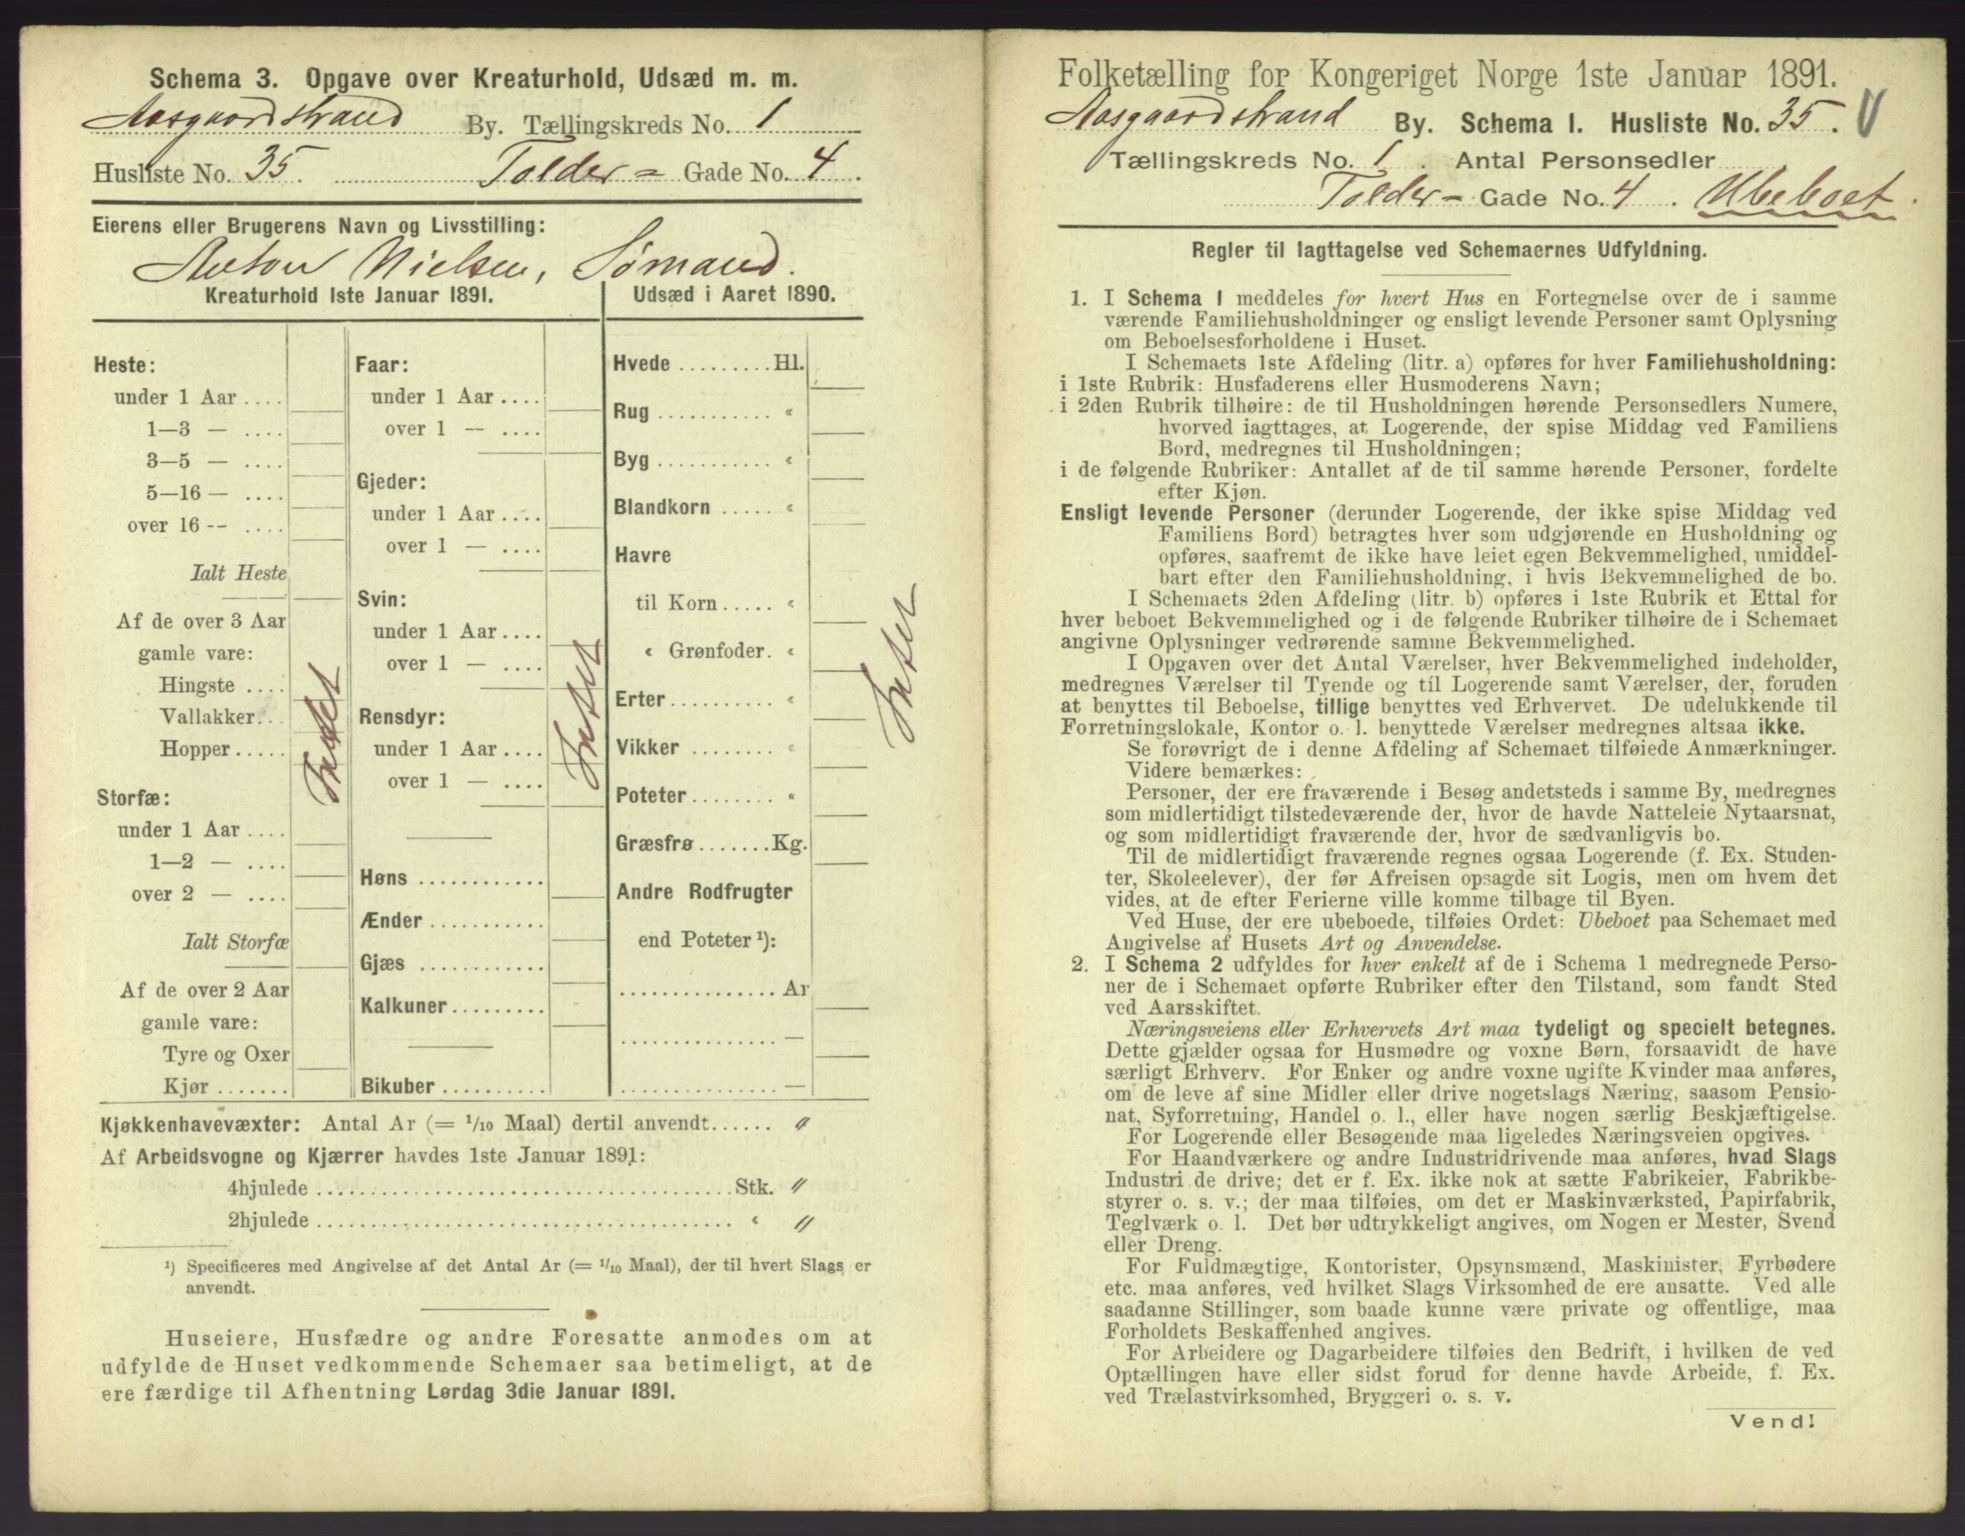 Schema 3. Opgave over Kreaturhold, Udsæd m. m.
Aasgaardstrand By. Tællingskreds No. 1
Husliste No. 35. Tolder- Gade No. 4.
Eierens eller Brugerens Navn og Livsstilling:
Anton Nielsen, Sømand.
Kreaturhold 1ste Januar 1891.
Heste:
under 1 Aar ....
1—3 — ....
3—5 — ....
5—16 — ....
over 16 -- ....
Ialt Heste
Af de over 3 Aar
gamle vare:
Hingste ....
Vallakker...
Hopper .....
Storfæ:
under 1 Aar ....
1—2 — ....
over 2 — ....
Ialt Storfæ
Af de over 2 Aar
gamle vare:
Tyre og Oxer
Kjør .......
Intet
Faar:
under 1 Aar ....
over 1 — ....
Gjeder:
under 1 Aar ....
over 1 — ....
Svin:
under 1 Aar ....
over 1 — ....
Rensdyr:
under 1 Aar ....
over 1 — ....
Høns ............
Ænder ...........
Gjæs ............
Kalkuner.........
Bikuber ..........
Intet
Udsæd i Aaret 1890.
Hvede .........Hl.
Rug ........... «
Byg ........... «
Blandkorn ..... «
Havre
til Korn ..... «
« Grønfoder. «
Erter .......... «
Vikker ........ «
Poteter ........ «
Græsfrø .......Kg.
Andre Rodfrugter
end Poteter ¹):
............... Ar
............... —
............... —
Intet
Kjøkkenhavevæxter: Antal Ar (= 1/10 Maal) dertil anvendt...... "
Af Arbeidsvogne og Kjærrer havdes 1ste Januar 1891:
4hjulede ....................................Stk. "
2hjulede .................................... « "
¹) Specificeres med Angivelse af det Antal Ar (= 1/10 Maal), der til hvert Slags er
anvendt.
Huseiere, Husfædre og andre Foresatte anmodes om at
udfylde de Huset vedkommende Schemaer saa betimeligt, at de
ere færdige til Afhentning Lørdag 3die Januar 1891.
Folketælling for Kongeriget Norge 1ste Januar 1891.
Aasgaardstrand By. Schema I. Husliste No. 35. V
Tællingskreds No. 1. Antal Personsedler
Tolder- Gade No. 4. Ubeboet.
Regler til Iagttagelse ved Schemaernes Udfyldning.
1. I Schema 1 meddeles for hvert Hus en Fortegnelse over de i samme
værende Familiehusholdninger og ensligt levende Personer samt Oplysning
om Beboelsesforholdene i Huset.
I Schemaets 1ste Afdeling (litr. a) opføres for hver Familiehusholdning:
i 1ste Rubrik: Husfaderens eller Husmoderens Navn;
i 2den Rubrik tilhøire: de til Husholdningen hørende Personsedlers Numere,
hvorved iagttages, at Logerende, der spise Middag ved Familiens
Bord, medregnes til Husholdningen;
i de følgende Rubriker: Antallet af de til samme hørende Personer, fordelte
efter Kjøn.
Ensligt levende Personer (derunder Logerende, der ikke spise Middag ved
Familiens Bord) betragtes hver som udgjørende en Husholdning og
opføres, saafremt de ikke have leiet egen Bekvemmelighed, umiddel-
bart efter den Familiehusholdning, i hvis Bekvemmelighed de bo.
I Schemaets 2den Afdeling (litr. b) opføres i 1ste Rubrik et Ettal for
hver beboet Bekvemmelighed og i de følgende Rubriker tilhøire de i Schemaet
angivne Oplysninger vedrørende samme Bekvemmelighed.
I Opgaven over det Antal Værelser, hver Bekvemmelighed indeholder,
medregnes Værelser til Tyende og til Logerende samt Værelser, der, foruden
at benyttes til Beboelse, tillige benyttes ved Erhvervet. De udelukkende til
Forretningslokale, Kontor o. l. benyttede Værelser medregnes altsaa ikke.
Se forøvrigt de i denne Afdeling af Schemaet tilføiede Anmærkninger.
Videre bemærkes:
Personer, der ere fraværende i Besøg andetsteds i samme By, medregnes
som midlertidigt tilstedeværende der, hvor de havde Natteleie Nytaarsnat,
og som midlertidigt fraværende der, hvor de sædvanligvis bo.
Til de midlertidigt fraværende regnes ogsaa Logerende (f. Ex. Studen-
ter, Skoleelever), der før Afreisen opsagde sit Logis, men om hvem det
vides, at de efter Ferierne ville komme tilbage til Byen.
Ved Huse, der ere ubeboede, tilføies Ordet: Ubeboet paa Schemaet med
Angivelse af Husets Art og Anvendelse.
2. I Schema 2 udfyldes for hver enkelt af de i Schema 1 medregnede Perso-
ner de i Schemaet opførte Rubriker efter den Tilstand, som fandt Sted
ved Aarsskiftet.
Næringsveiens eller Erhvervets Art maa tydeligt og specielt betegnes.
Dette gjælder ogsaa for Husmødre og voxne Børn, forsaavidt de have
særligt Erhverv. For Enker og andre voxne ugifte Kvinder maa anføres,
om de leve af sine Midler eller drive nogetslags Næring, saasom Pensio-
nat, Syforretning, Handel o. l., eller have nogen særlig Beskjæftigelse.
For Logerende eller Besøgende maa ligeledes Næringsveien opgives.
For Haandværkere og andre Industridrivende maa anføres, hvad Slags
Industri de drive; det er f. Ex. ikke nok at sætte Fabrikeier, Fabrikbe-
styrer o. s. v.; der maa tilføies, om det er Maskinværksted, Papirfabrik,
Teglværk o. l. Det bør udtrykkeligt angives, om Nogen er Mester, Svend
eller Dreng.
For Fuldmægtige, Kontorister, Opsynsmænd, Maskinister, Fyrbødere
etc. maa anføres, ved hvilket Slags Virksomhed de ere ansatte. Ved alle
saadanne Stillinger, som baade kunne være private og offentlige, maa
Forholdets Beskaffenhed angives.
For Arbeidere og Dagarbeidere tilføies den Bedrift, i hvilken de ved
Optællingen have eller sidst forud for denne havde Arbeide, f. Ex.
ved Trælastvirksomhed, Bryggeri o. s. v.
Vend!